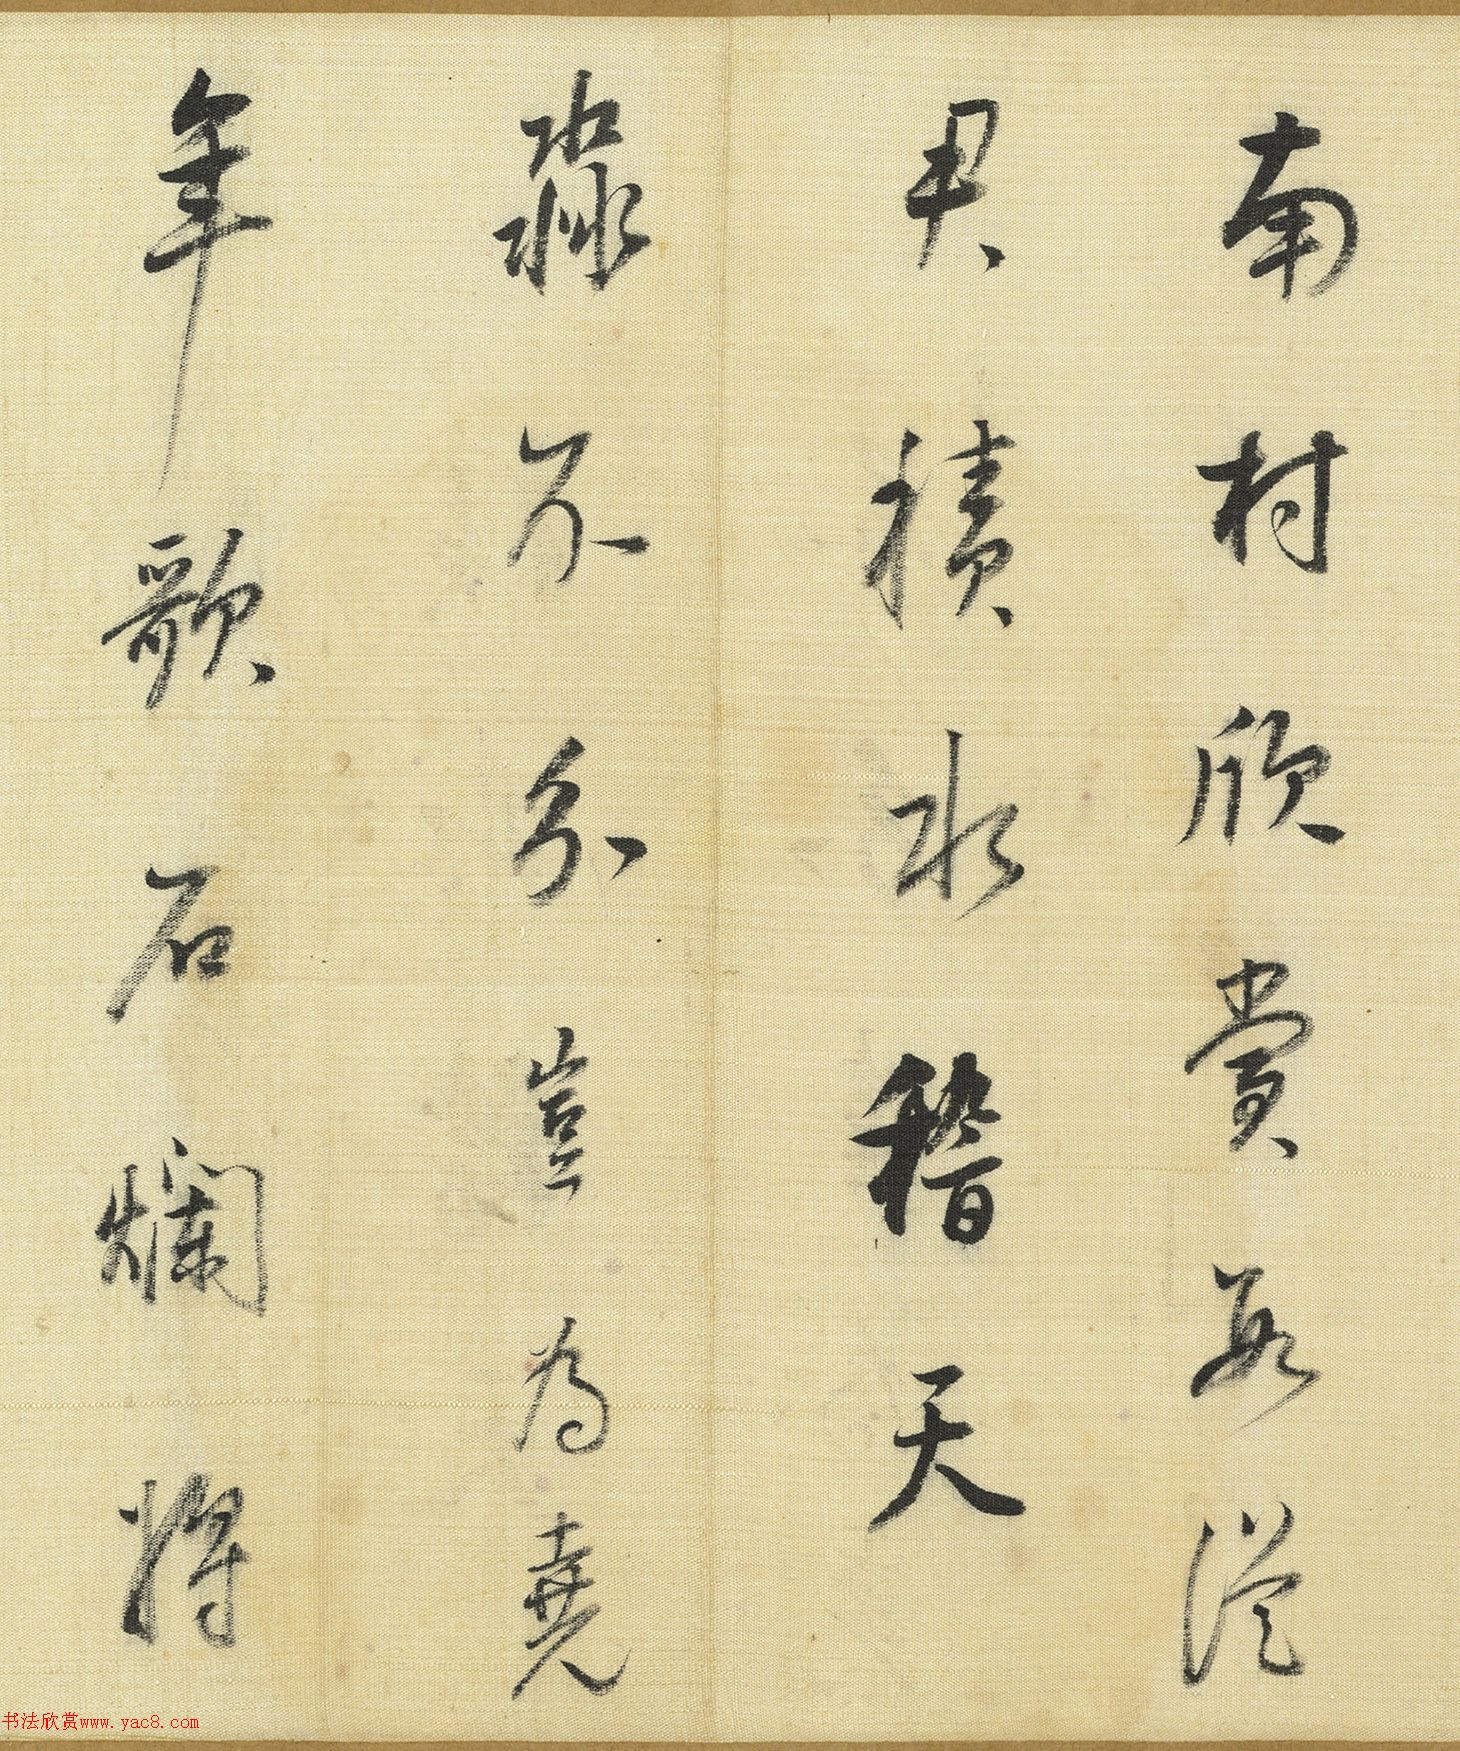 南村欣賞從
君積水稽天
淼不分豈為堯
年歌石爛將
书法欣赏www.yac8.com